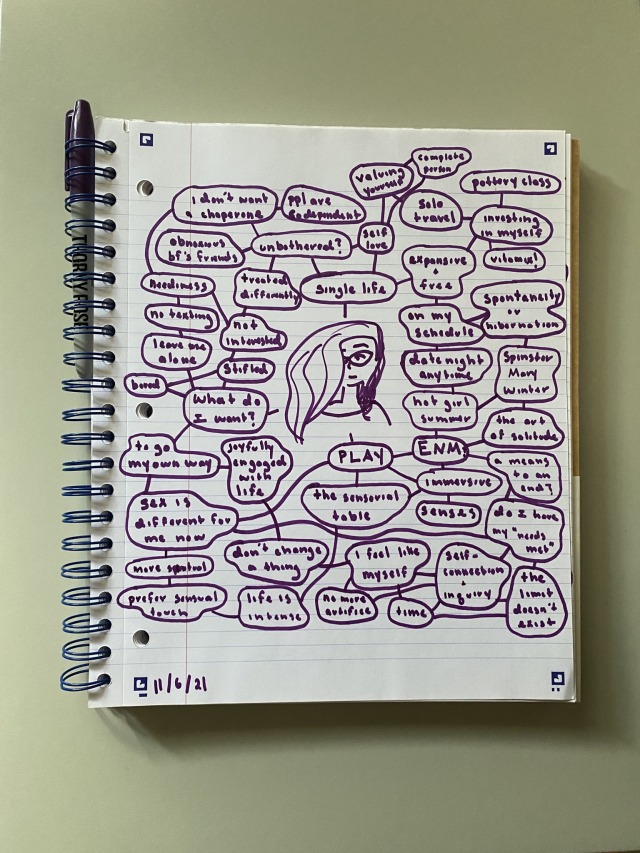 complete
person
valuing
yourself
pottery class
I don't want
a chaperone
ppl are
codependent
solo
travel
investing
in myself
obnoxious
bf's friends
unbothered?
self
love
vitamix!
expansive
+
free
neediness
treated
differently
single life
spontaneity
or
hibernation
no texting
on my
schedule
not
interested
leave me
alone
date night
anytime
Spinster
Mary
Winter
stifled
bored
What do
I want?
hot girl
summer
the art
of solitude
to go
my own way
joyfully
engaged
with
life
PLAY
ENM
a means
to an
end?
immersive
the sensorial
table
sex is
different for
me now
senses
do I have
my "needs
met"
don't change
a thing
I feel like
myself
self-
connection
+
inquiry
more spiritual
prefer sensual
touch
life is
intense
no more
artifice
time
the
limit
doesn't
exist
11/6/21